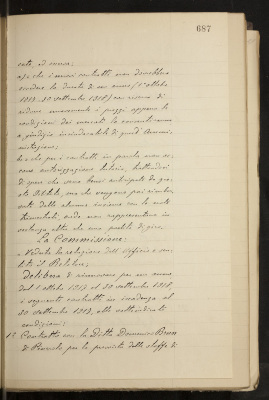 687
cato, ed invero;
a) che i nuovi contratti non dovrebbero
eccedere la durata di un anno (1° ottobre
1917 - 30 settembre 1918) con riserva di
ridurre nuovamente i prezzi appena le
condizioni dei mercati lo consentiranno
a giudizio insindacabile di quest' Ammini-
strazione;
b) che per i contratti in parola non oc-
corre autorizzazione tutoria, trattandosi
di spese che sono bensì anticipate da que-
sto Istituto, ma che vengono poi rimbor-
sate dalle alunne insieme con le rette
trimestrali, onde non rappresentano in
sostanza altro che una partita di giro
La Commissione:
Veduta la relazione dell' Ufficio e sen-
tito il Relatore;
Delibera di rinnovare per un anno,
dal 1 ottobre 1917 al 30 settembre 1918,
i seguenti contratti in scadenza al
30 settembre 1917, alle sottoindicate
condizioni:
1° Contratto con la Ditta Domenico Bonn
di per la provvista delle stoffe di